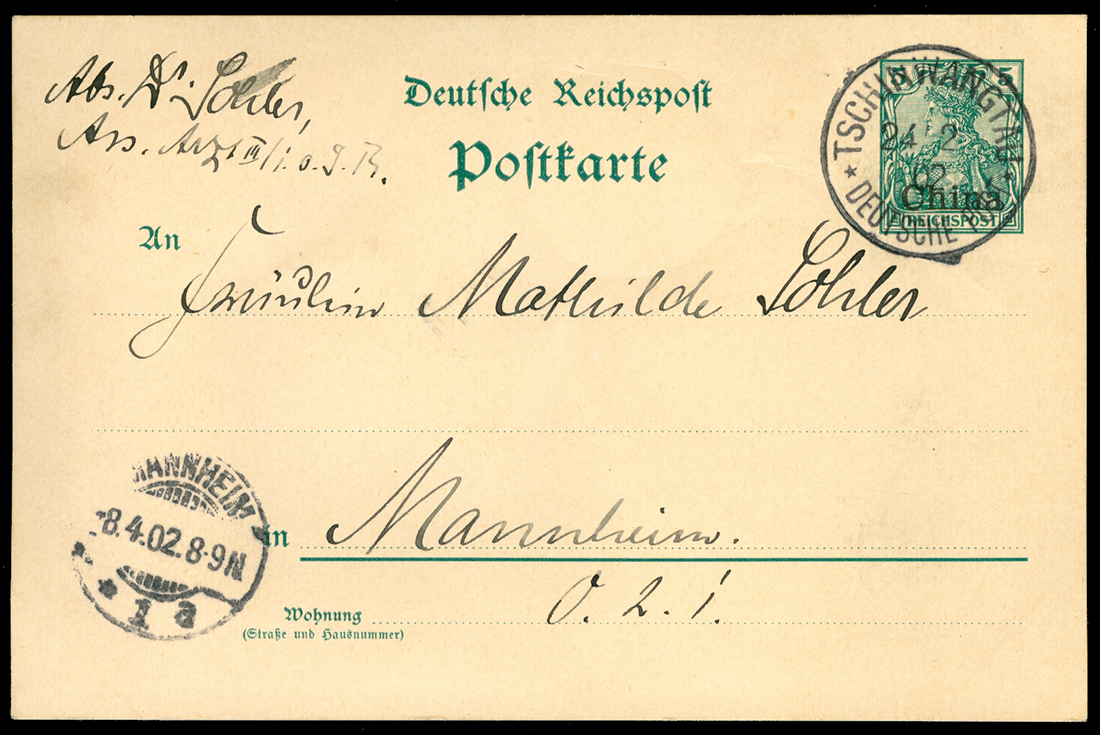 Abs. Dr. Sohler,
Ass. Arzt III/1. o. J. R.
Deutsche Reichspost
Postkarte
5
TSCHINWANGTAU
24 2
02
China
REICHSPOST
DEUTSCHE POST
An
Fräulein Mathilde Sohler
MANNHEIM
-8.4.02.8-9N
* 1 a
in Mannheim.
Wohnung O. 2. 1.
(Straße und Hausnummer)